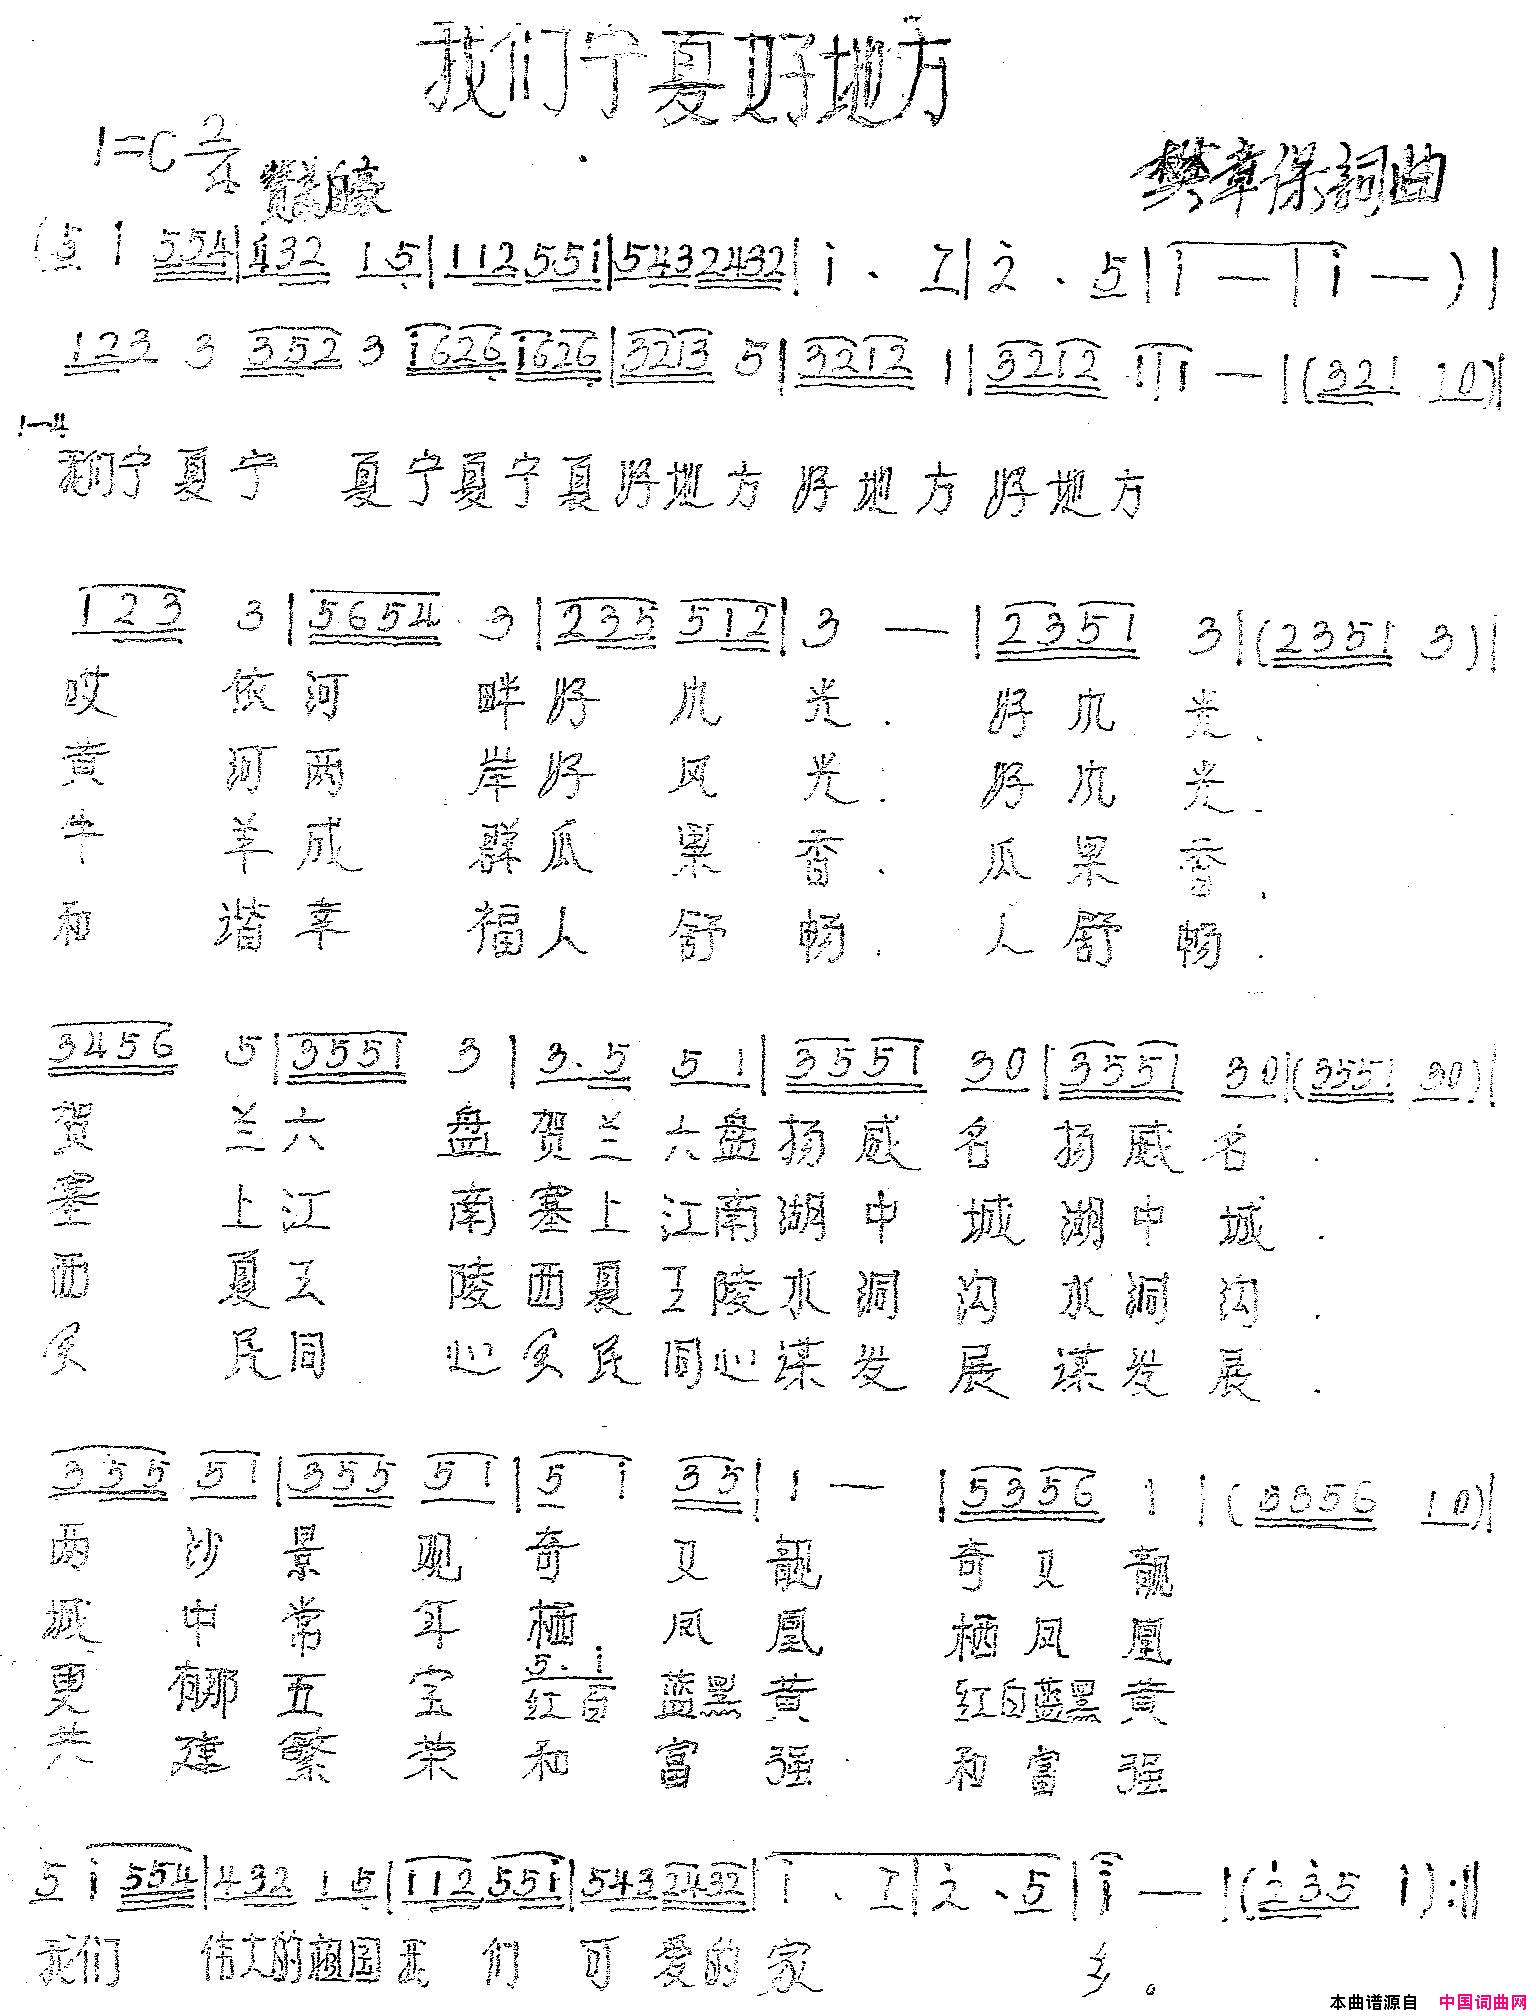 我们宁夏好地方
1=C 2/4 赞美自豪
樊章保詞曲
(5 i 554|432 1 5|112 551|5432432|i . 7|2 . 5|i —|i —)|
123 3 352 3 i626 i626|3213 5|3212 1|3212 1|1 —|(321 10)||
1—4
我们宁夏宁 夏宁夏宁夏好地方好地方好地方
123 3|5654 3|235 512|3 —|2351 3|(2351 3)|
哎 依河 畔好风光. 好风光.
黄 河两 岸好风光. 好风光.
牛 羊成 群瓜果香. 瓜果香.
和 谐幸 福人舒畅. 人舒畅.
3456 5|3551 3|3.5 5 1|3551 30|3551 30|(3551 30)|
贺 兰六 盘贺兰六盘扬威名扬威名.
塞 上江 南塞上江南湖中城湖中城.
西 夏王 陵西夏王陵水洞沟水洞沟.
民同 心 民同心谋发展谋发展.
355 51|355 51|5 i 35|1 —|5356 1|(5356 10)|
两沙景观奇又靓 奇又靓
城中常年栖凤凰 栖凤凰
5. i
更有那五宝红白蓝黑黄 红白蓝黑黄
共建繁荣和富强 和富强
5 i 554|432 1 5|112 551|5432432|i . 7|2 . 5|i —|(235 i):||
我们 伟大的祖国我们可爱的家 乡。
本曲谱源自 中国词曲网